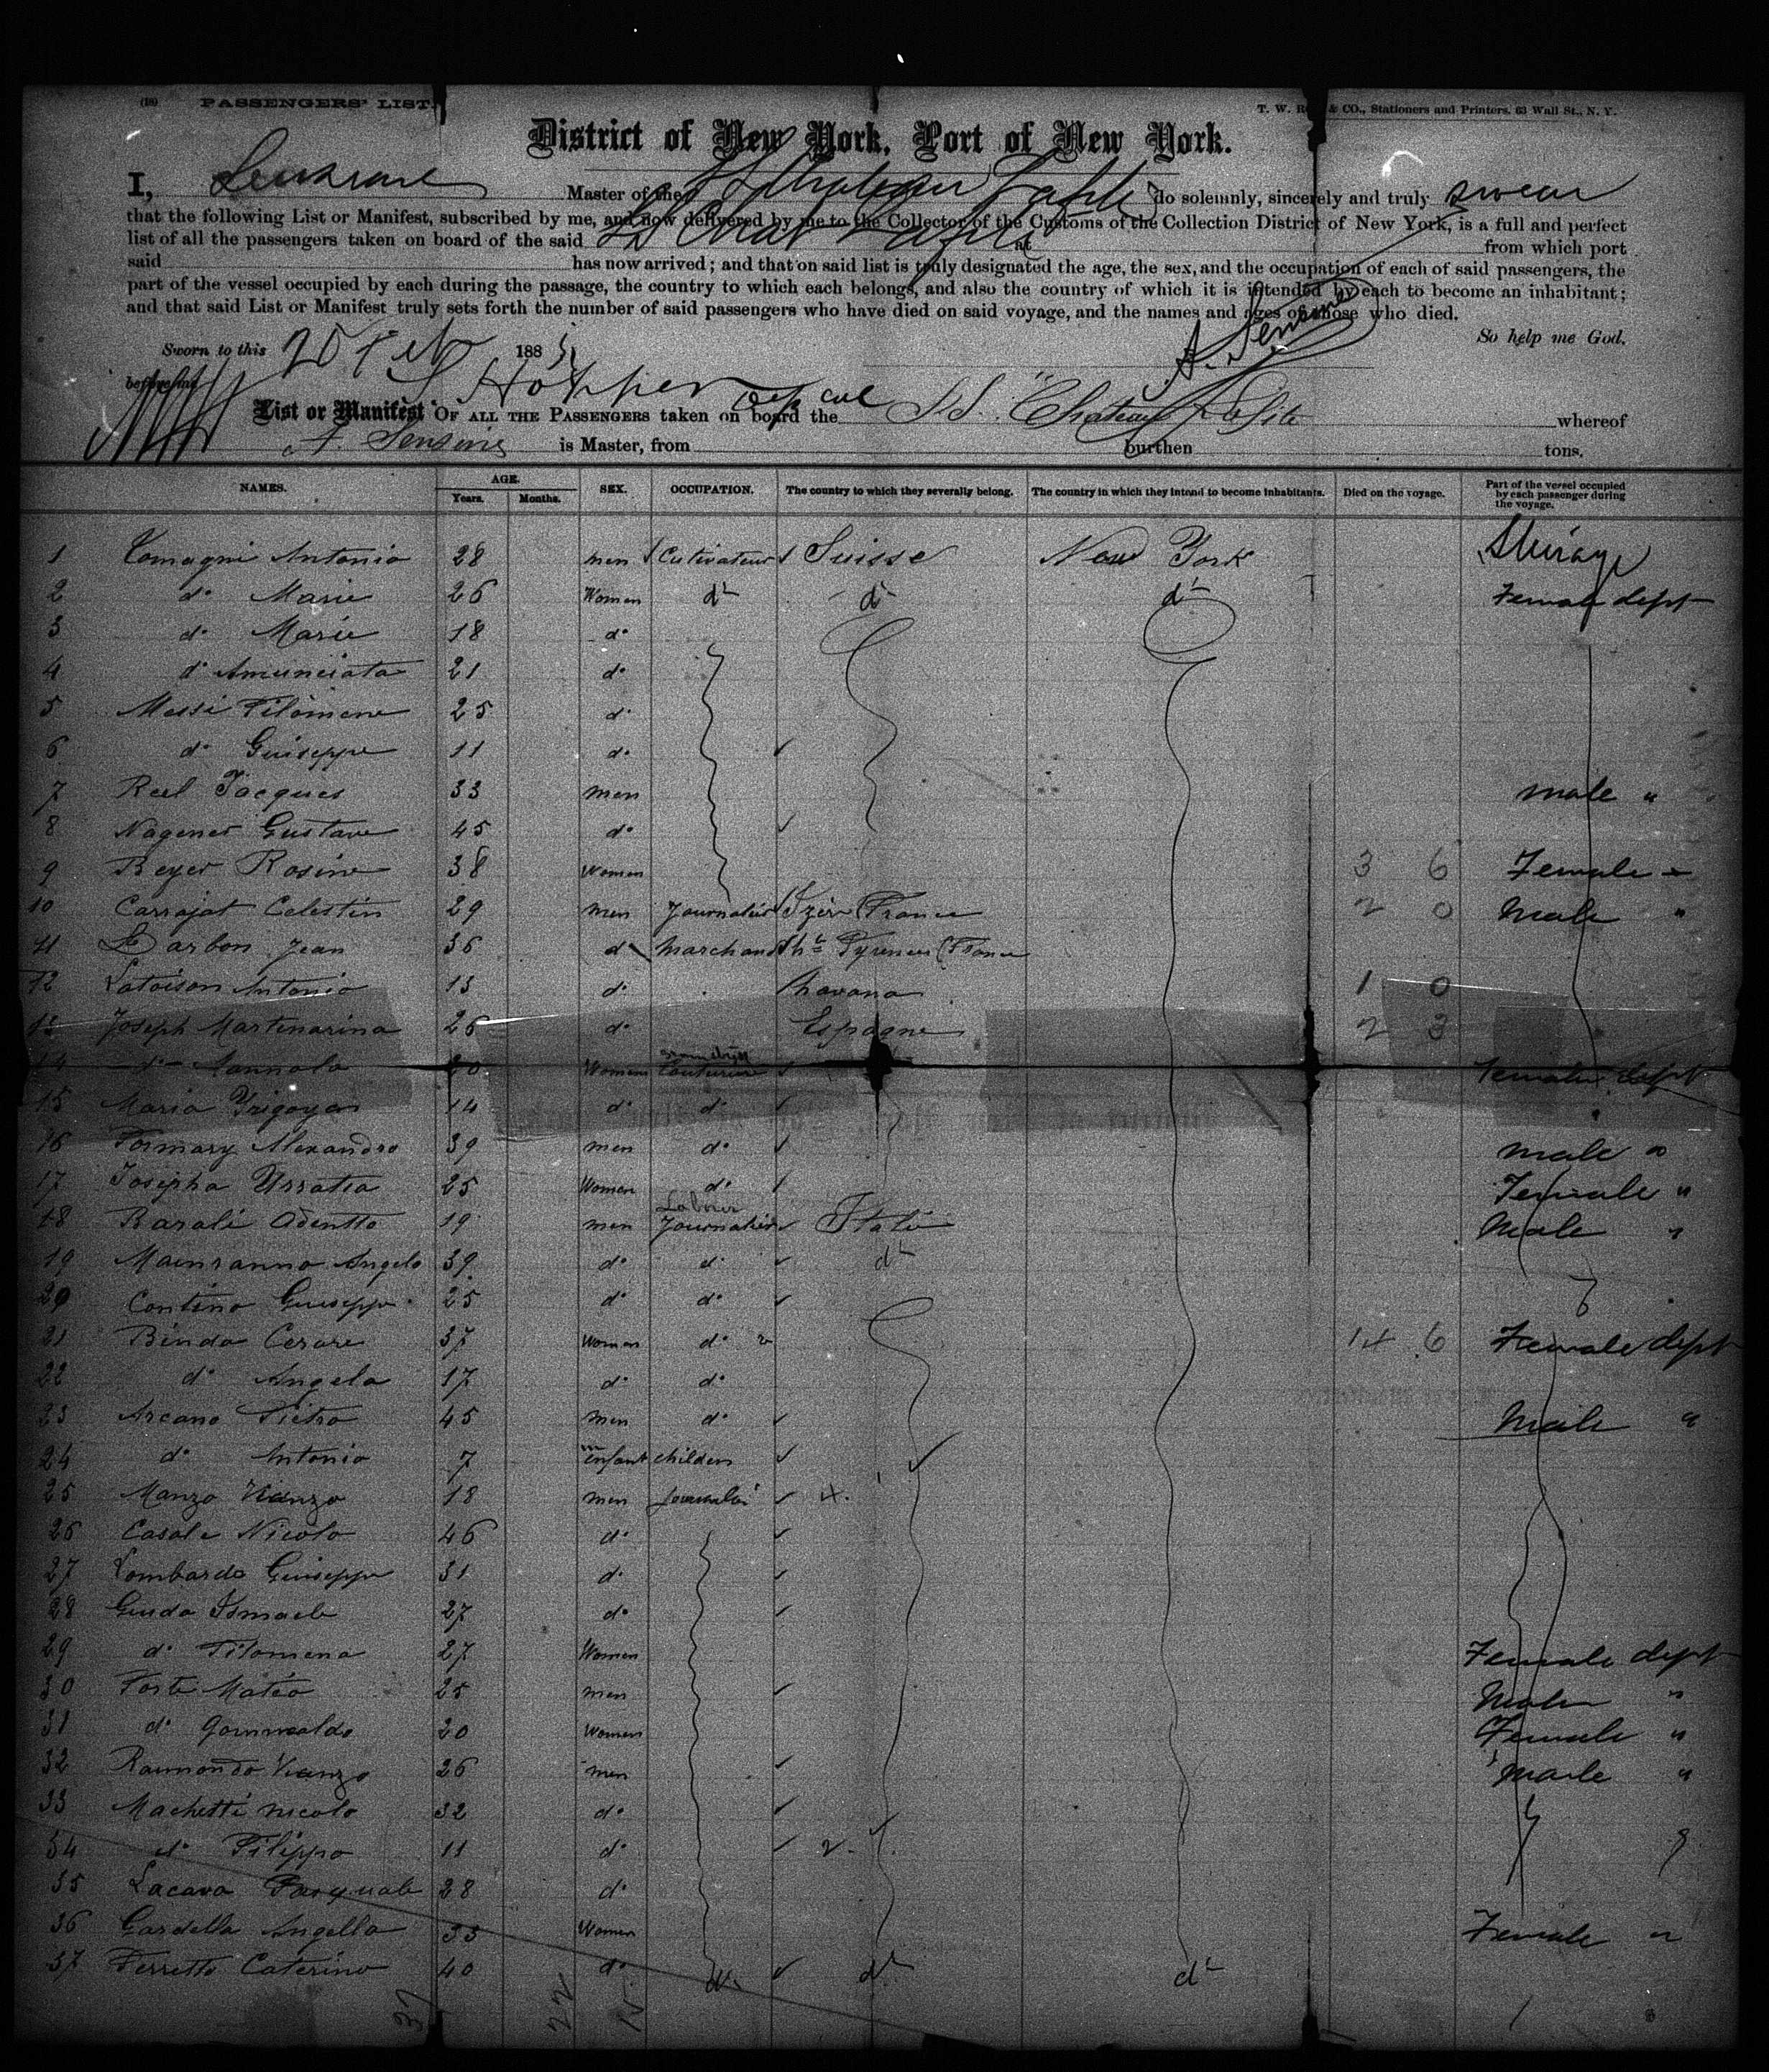 (18) PASSENGERS' LIST.
T. W. & CO., Stationers and Printers, 63 Wall St., N. Y.
District of New York, Port of New York.
I, Master of the do solemnly, sincerely and truly swear
that the following List or Manifest, subscribed by me, and now delivered by me to the Collector of the Customs of the Collection District of New York, is a full and perfect
list of all the passengers taken on board of the said at from which port
said has now arrived; and that on said list is truly designated the age, the sex, and the occupation of each of said passengers, the
part of the vessel occupied by each during the passage, the country to which each belongs, and also the country of which it is intended by each to become an inhabitant;
and that said List or Manifest truly sets forth the number of said passengers who have died on said voyage, and the names and ages of those who died.
So help me God.
Sworn to this 20 Feb 188
before me Hopper Dep Col
List or Manifest OF ALL THE PASSENGERS taken on board the SS "Chateau Lafite whereof
is Master, from burthen tons.
NAMES. AGE. Years. Months. SEX. OCCUPATION. The country to which they severally belong. The country in which they intend to become inhabitants. Died on the voyage. Part of the vessel occupied by each passenger during the voyage.
1 Antonio 28 men Cultivateur Suisse New York
2 do Marie 26 Women do do do Female dept
3 do Marie 18 do
4 do Amunciata 21 do
5 Messi Filomene 25 do
6 do Guiseppe 11 do
7 Reel Jacques 33 men male "
8 Gustave 45 do
9 Beyer Rosine 38 Women 3 6 Female "
10 Carrajat Celestin 29 men Journalier France 2 0 Male "
11 Jean 36 do Marchand Pyrenees (France
12 Antonio 13 do havana 1 0
13 Joseph Martinarina 26 do Espagne 2 3
14 do Women Couturiere Female Dept
15 Maria Yrigoyen 14 do do
16 Alexandro 39 men do male "
17 Josepha Urratia 25 Women do Female "
18 Adentto 19 men Laborer Journalier Italie Male "
19 Angelo 39 do do do
20 Contino Guiseppe 25 do do
21 Binda Cesare 37 Women do 14 6 Female dept
22 do Angela 17 do do
23 Arcano Pietro 45 men do Male "
24 do Antonio 7 enfant childers
25 Manzo 18 men Journalier
26 Casale Nicolo 46 do
27 Lombardo Guiseppe 31 do
28 Guida Ismaele 27 do
29 do Filomena 27 Women Female dept
30 Forte Mateo 25 men Male "
31 do 20 Women Female "
32 Raimondo 26 men Male "
33 Machetti nicolo 32 do
34 do Filippo 11 do 2
35 Lacava Pasquale 28 do
36 Gardella Angella 33 Women Female "
37 Ferretto Caterino 40 do do do do
37 22 15